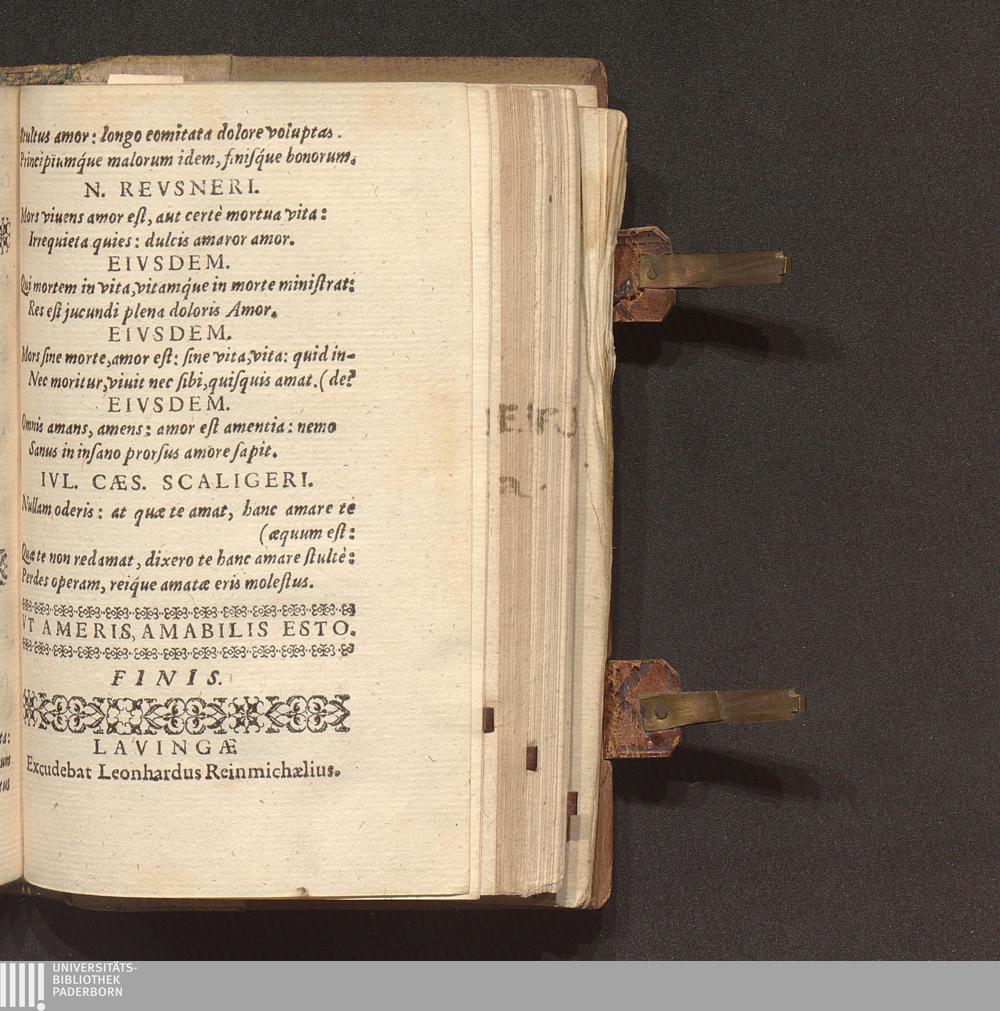 ſtultus amor: longo comitata dolore voluptas.
Principiumq́ue malorum idem, finiſq́ue bonorum.
N. REVSNERI.
Mors viuens amor eſt, aut certè mortua vita:
Irrequieta quies: dulcis amaror amor.
EIVSDEM.
Qui mortem in vita, vitamq́ue in morte miniſtrat:
Res eſt jucundi plena doloris Amor.
EIVSDEM.
Mors ſine morte, amor eſt: ſine vita, vita: quid in-
Nec moritur, viuit nec ſibi, quiſquis amat. (de?
EIVSDEM.
Omnis amans, amens: amor eſt amentia: nemo
Sanus in inſano prorſus amore ſapit.
IVL. CÆS. SCALIGERI.
Nullam oderis: at quæ te amat, hanc amare te
(æquum eſt:
Quæ te non redamat, dixero te hanc amare ſtultè:
Perdes operam, reiq́ue amatæ eris moleſtus.
VT AMERIS, AMABILIS ESTO.
FINIS.
LAVINGÆ
Excudebat Leonhardus Reinmichælius.
UNIVERSITÄTS-
BIBLIOTHEK
PADERBORN